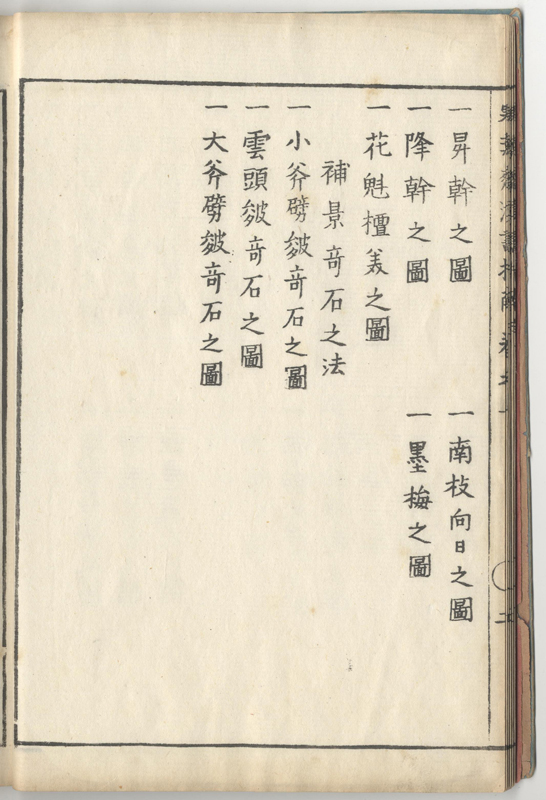 一昇幹之圖
一南枝向日之圖
一降幹之圖
一墨梅之圖
一花魁檀美之圖
補景竒石之法
一小斧劈皴竒石之圖
一雲頭皴竒石之圖
一大斧劈皴竒石之圖